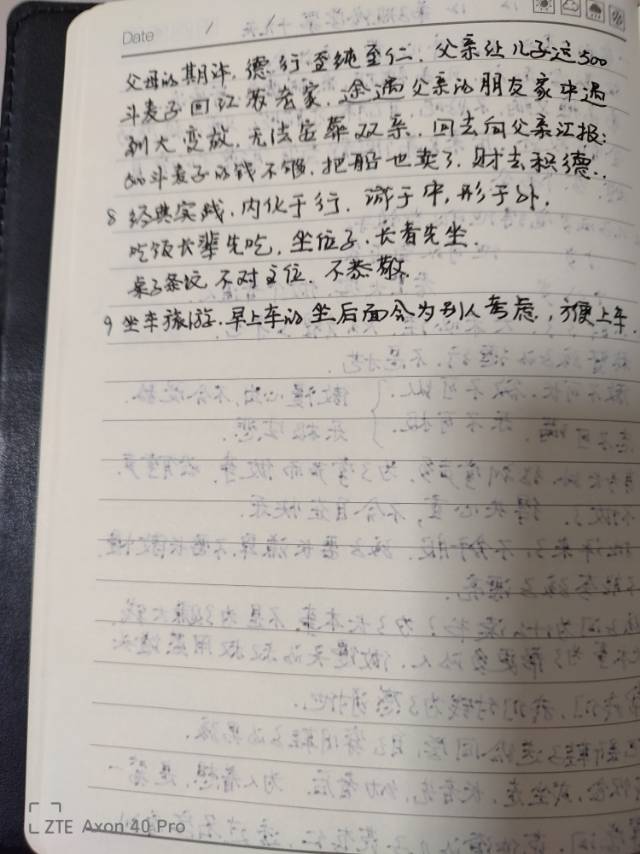 Date / /
父母的期许，德行至纯至仁．父亲让儿子运500
斗麦子回江苏老家．途遇父亲的朋友家中遇
到大变故，无法安葬双亲．回去向父亲汇报：
500斗麦子的钱不够，把船也卖了．财去积德．
8 经典实践，内化于行．诚于中，形于外，
吃饭长辈先吃，坐位子．长者先坐．
桌子条纹不对主位．不恭敬．
9 坐车旅游．早上车的坐后面会为别人考虑，方便上车．
ZTE Axon 40 Pro